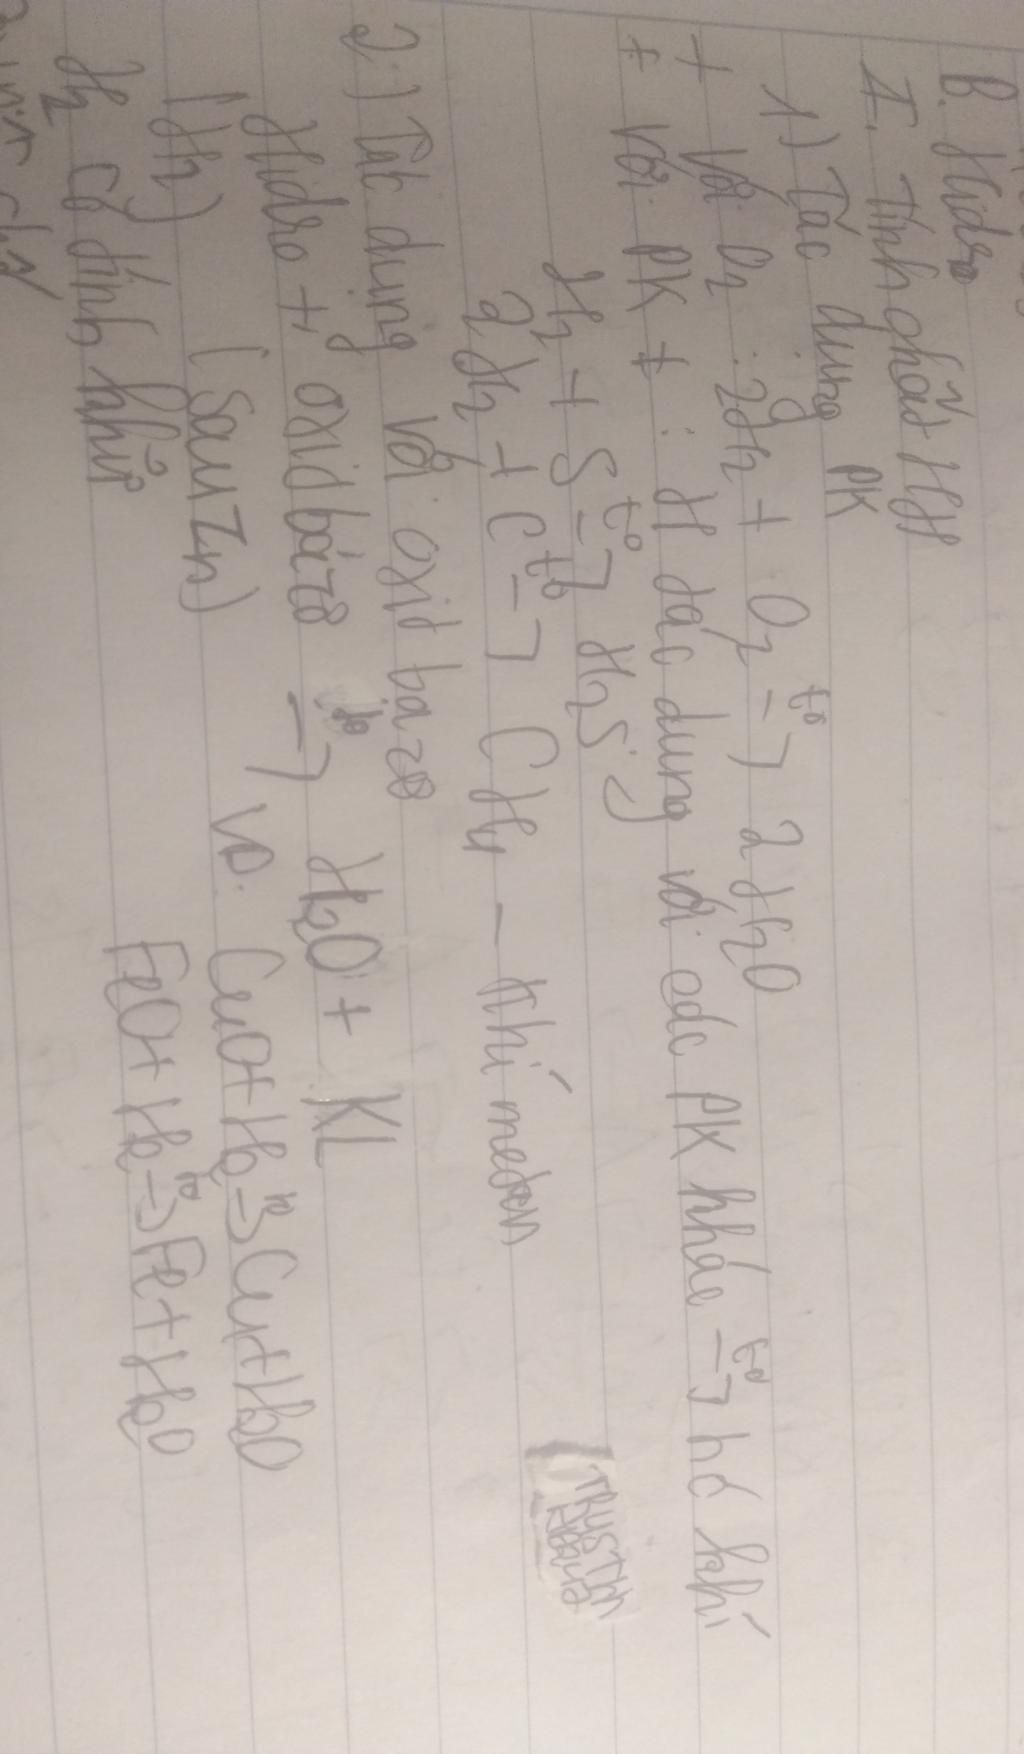 B. Hidro
I. Tính chất HH
1) Tác dụng PK
+ Với O2 : 2H2 + O2 t° → 2H2O
+ Với PK ≠ : H tác dụng với các PK khác t° → hc khí
H2 + S t° → H2S
2H2 + C t° → CH4 – Khí metan
2.) Tác dụng với oxit bazơ
Hidro + oxit bazơ t° → H2O + KL
(H2) (Sau Zn) VD. CuO + H2 t° → Cu + H2O
H2 có tính khử FeO + H2 t° → Fe + H2O